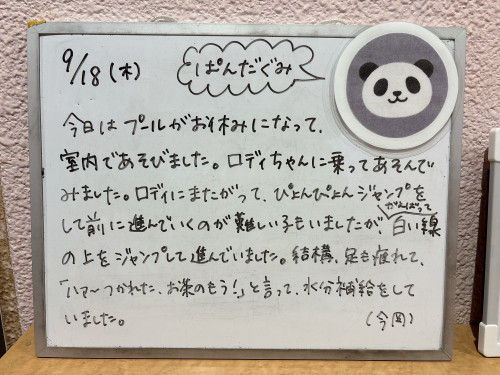 9/18(木)
ぱんだぐみ
今日はプールがお休みになって、
室内であそびました。ロディちゃんに乗ってあそんで
みました。ロディにまたがって、ぴょんぴょんジャンプを
して前に進んでいくのが難しい子もいましたが、がんばって白い線
の上をジャンプして進んでいました。結構、足も疲れて、
「ハァ〜つかれた、お茶のもう!」と言って、水分補給をして
いました。
(今岡)